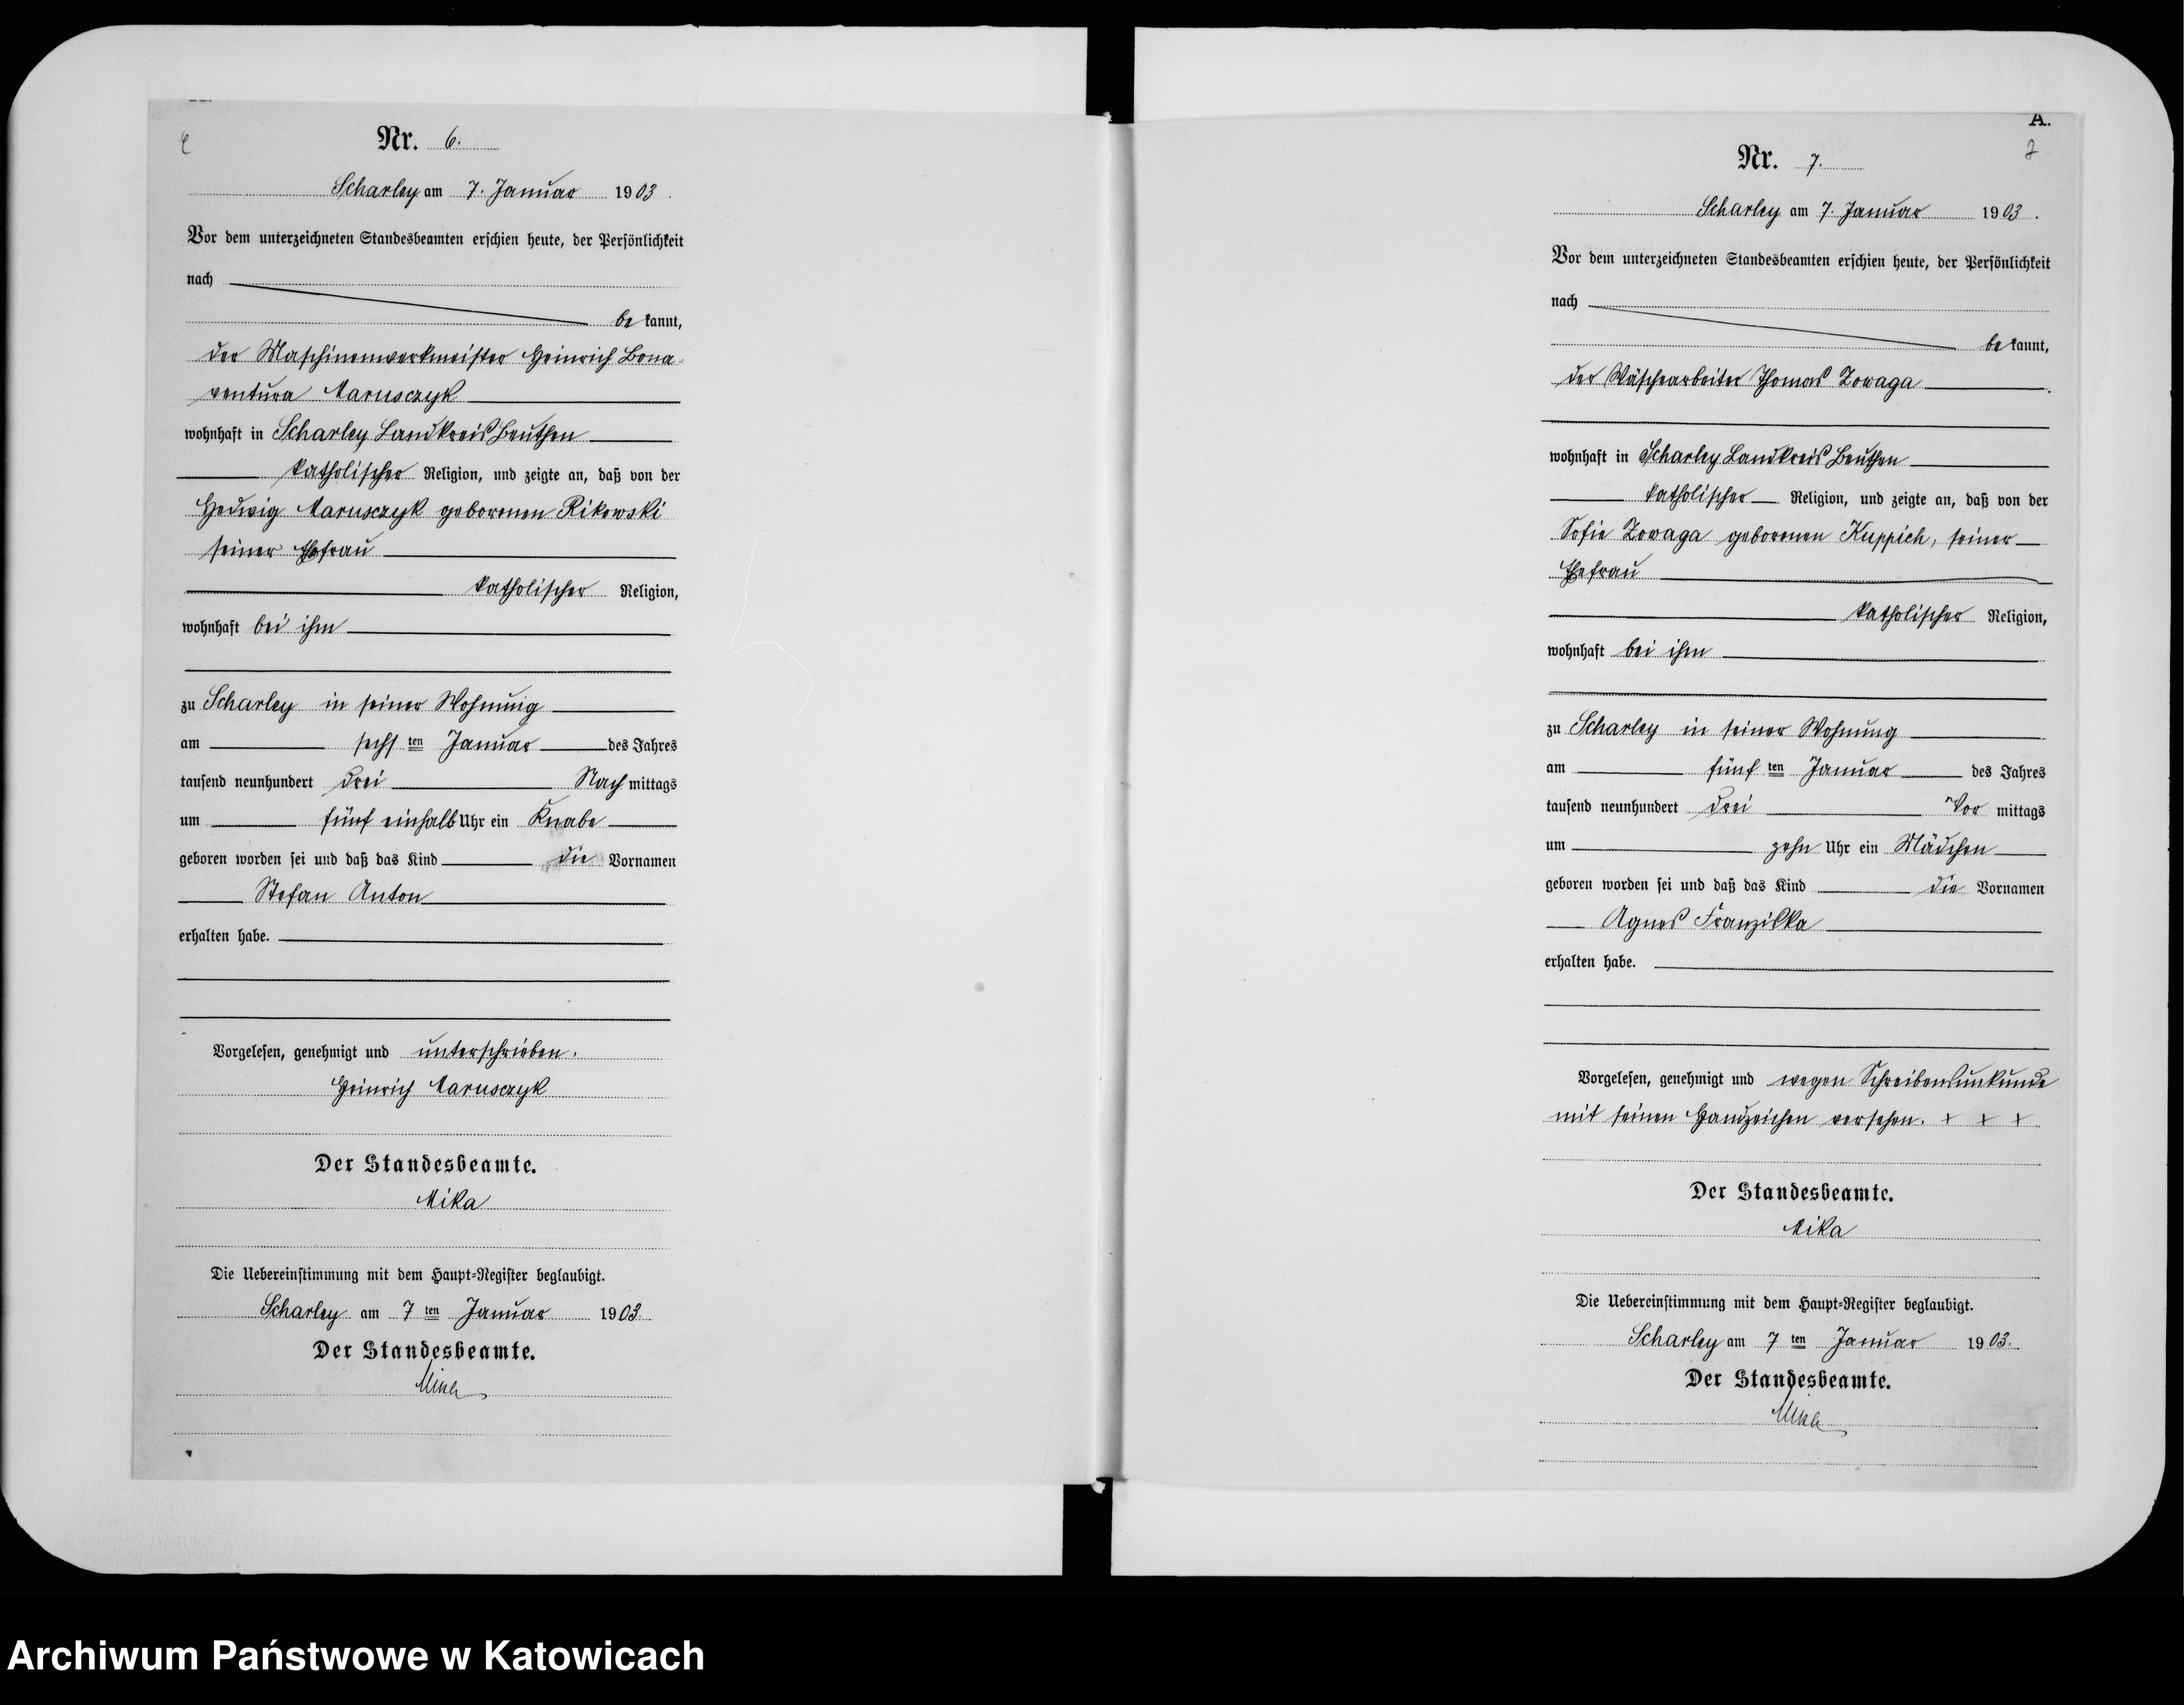 Nr. 6.
Scharley am 7. Januar 1903.
Vor dem unterzeichneten Standesbeamten erschien heute, der Persönlichkeit
nach
bekannt,
der Maschinenwerkmeister Heinrich Bona-
ventura Marusczyk
wohnhaft in Scharley Landkreis Beuthen
katholischer Religion, und zeigte an, daß von der
Hedwig Marusczyk geborenen Rikowski
seiner Ehefrau
katholischer Religion,
wohnhaft bei ihm
zu Scharley in seiner Wohnung
am sechsten Januar des Jahres
tausend neunhundert drei Nachmittags
um fünf einhalb Uhr ein Knabe
geboren worden sei und daß das Kind die Vornamen
Stefan Anton
erhalten habe.
Vorgelesen, genehmigt und unterschrieben.
Heinrich Marusczyk
Der Standesbeamte.
Mika
Die Uebereinstimmung mit dem Haupt-Register beglaubigt.
Scharley am 7ten Januar 1903.
Der Standesbeamte.
Mika
A.
7
Nr. 7.
Scharley am 7. Januar 1903.
Vor dem unterzeichneten Standesbeamten erschien heute, der Persönlichkeit
nach
bekannt,
der Wäschearbeiter Thomas Zowaga
wohnhaft in Scharley Landkreis Beuthen
katholischer Religion, und zeigte an, daß von der
Sofie Zowaga geborenen Kuppich, seiner
Ehefrau
katholischer Religion,
wohnhaft bei ihm
zu Scharley in seiner Wohnung
am fünften Januar des Jahres
tausend neunhundert drei Vormittags
um zehn Uhr ein Mädchen
geboren worden sei und daß das Kind die Vornamen
Agnes Franziska
erhalten habe.
Vorgelesen, genehmigt und wegen Schreibensunkunde
mit seinen Handzeichen versehen. + + +
Der Standesbeamte.
Mika
Die Uebereinstimmung mit dem Haupt-Register beglaubigt.
Scharley am 7ten Januar 1903.
Der Standesbeamte.
Mika
Archiwum Państwowe w Katowicach